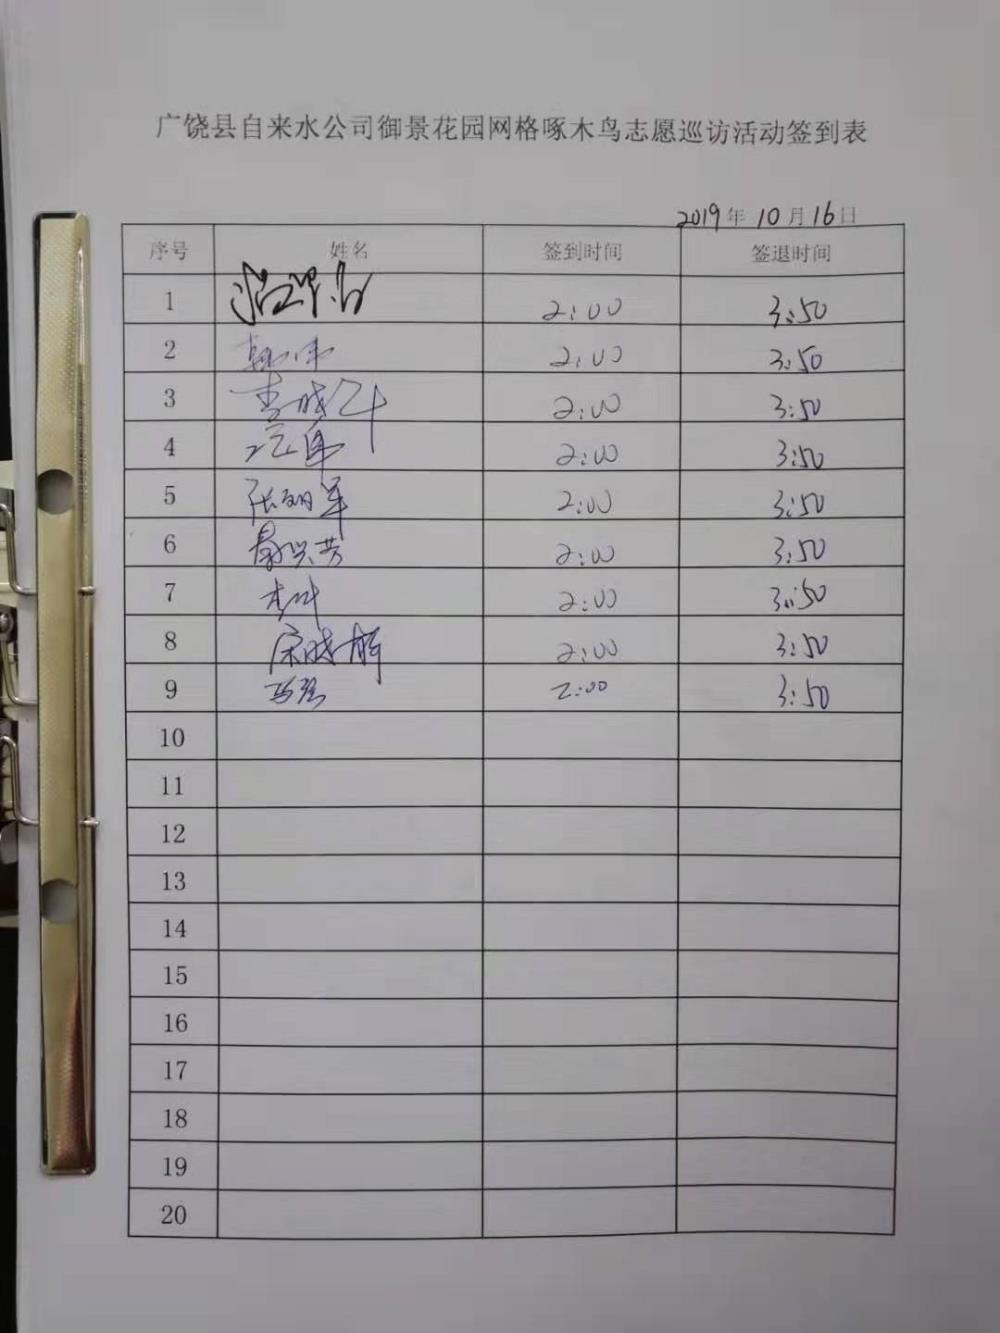 广饶县自来水公司御景花园网格啄木鸟志愿巡访活动签到表
2019年10月16日
序号 姓名 签到时间 签退时间
1 2:00 3:50
2 韩伟 2:00 3:50
3 李晓 2:00 3:50
4 2:00 3:50
5 张丽军 2:00 3:50
6 聂兴芳 2:00 3:50
7 李叶 2:00 3:50
8 宋晓楠 2:00 3:50
9 马强 2:00 3:50
10
11
12
13
14
15
16
17
18
19
20